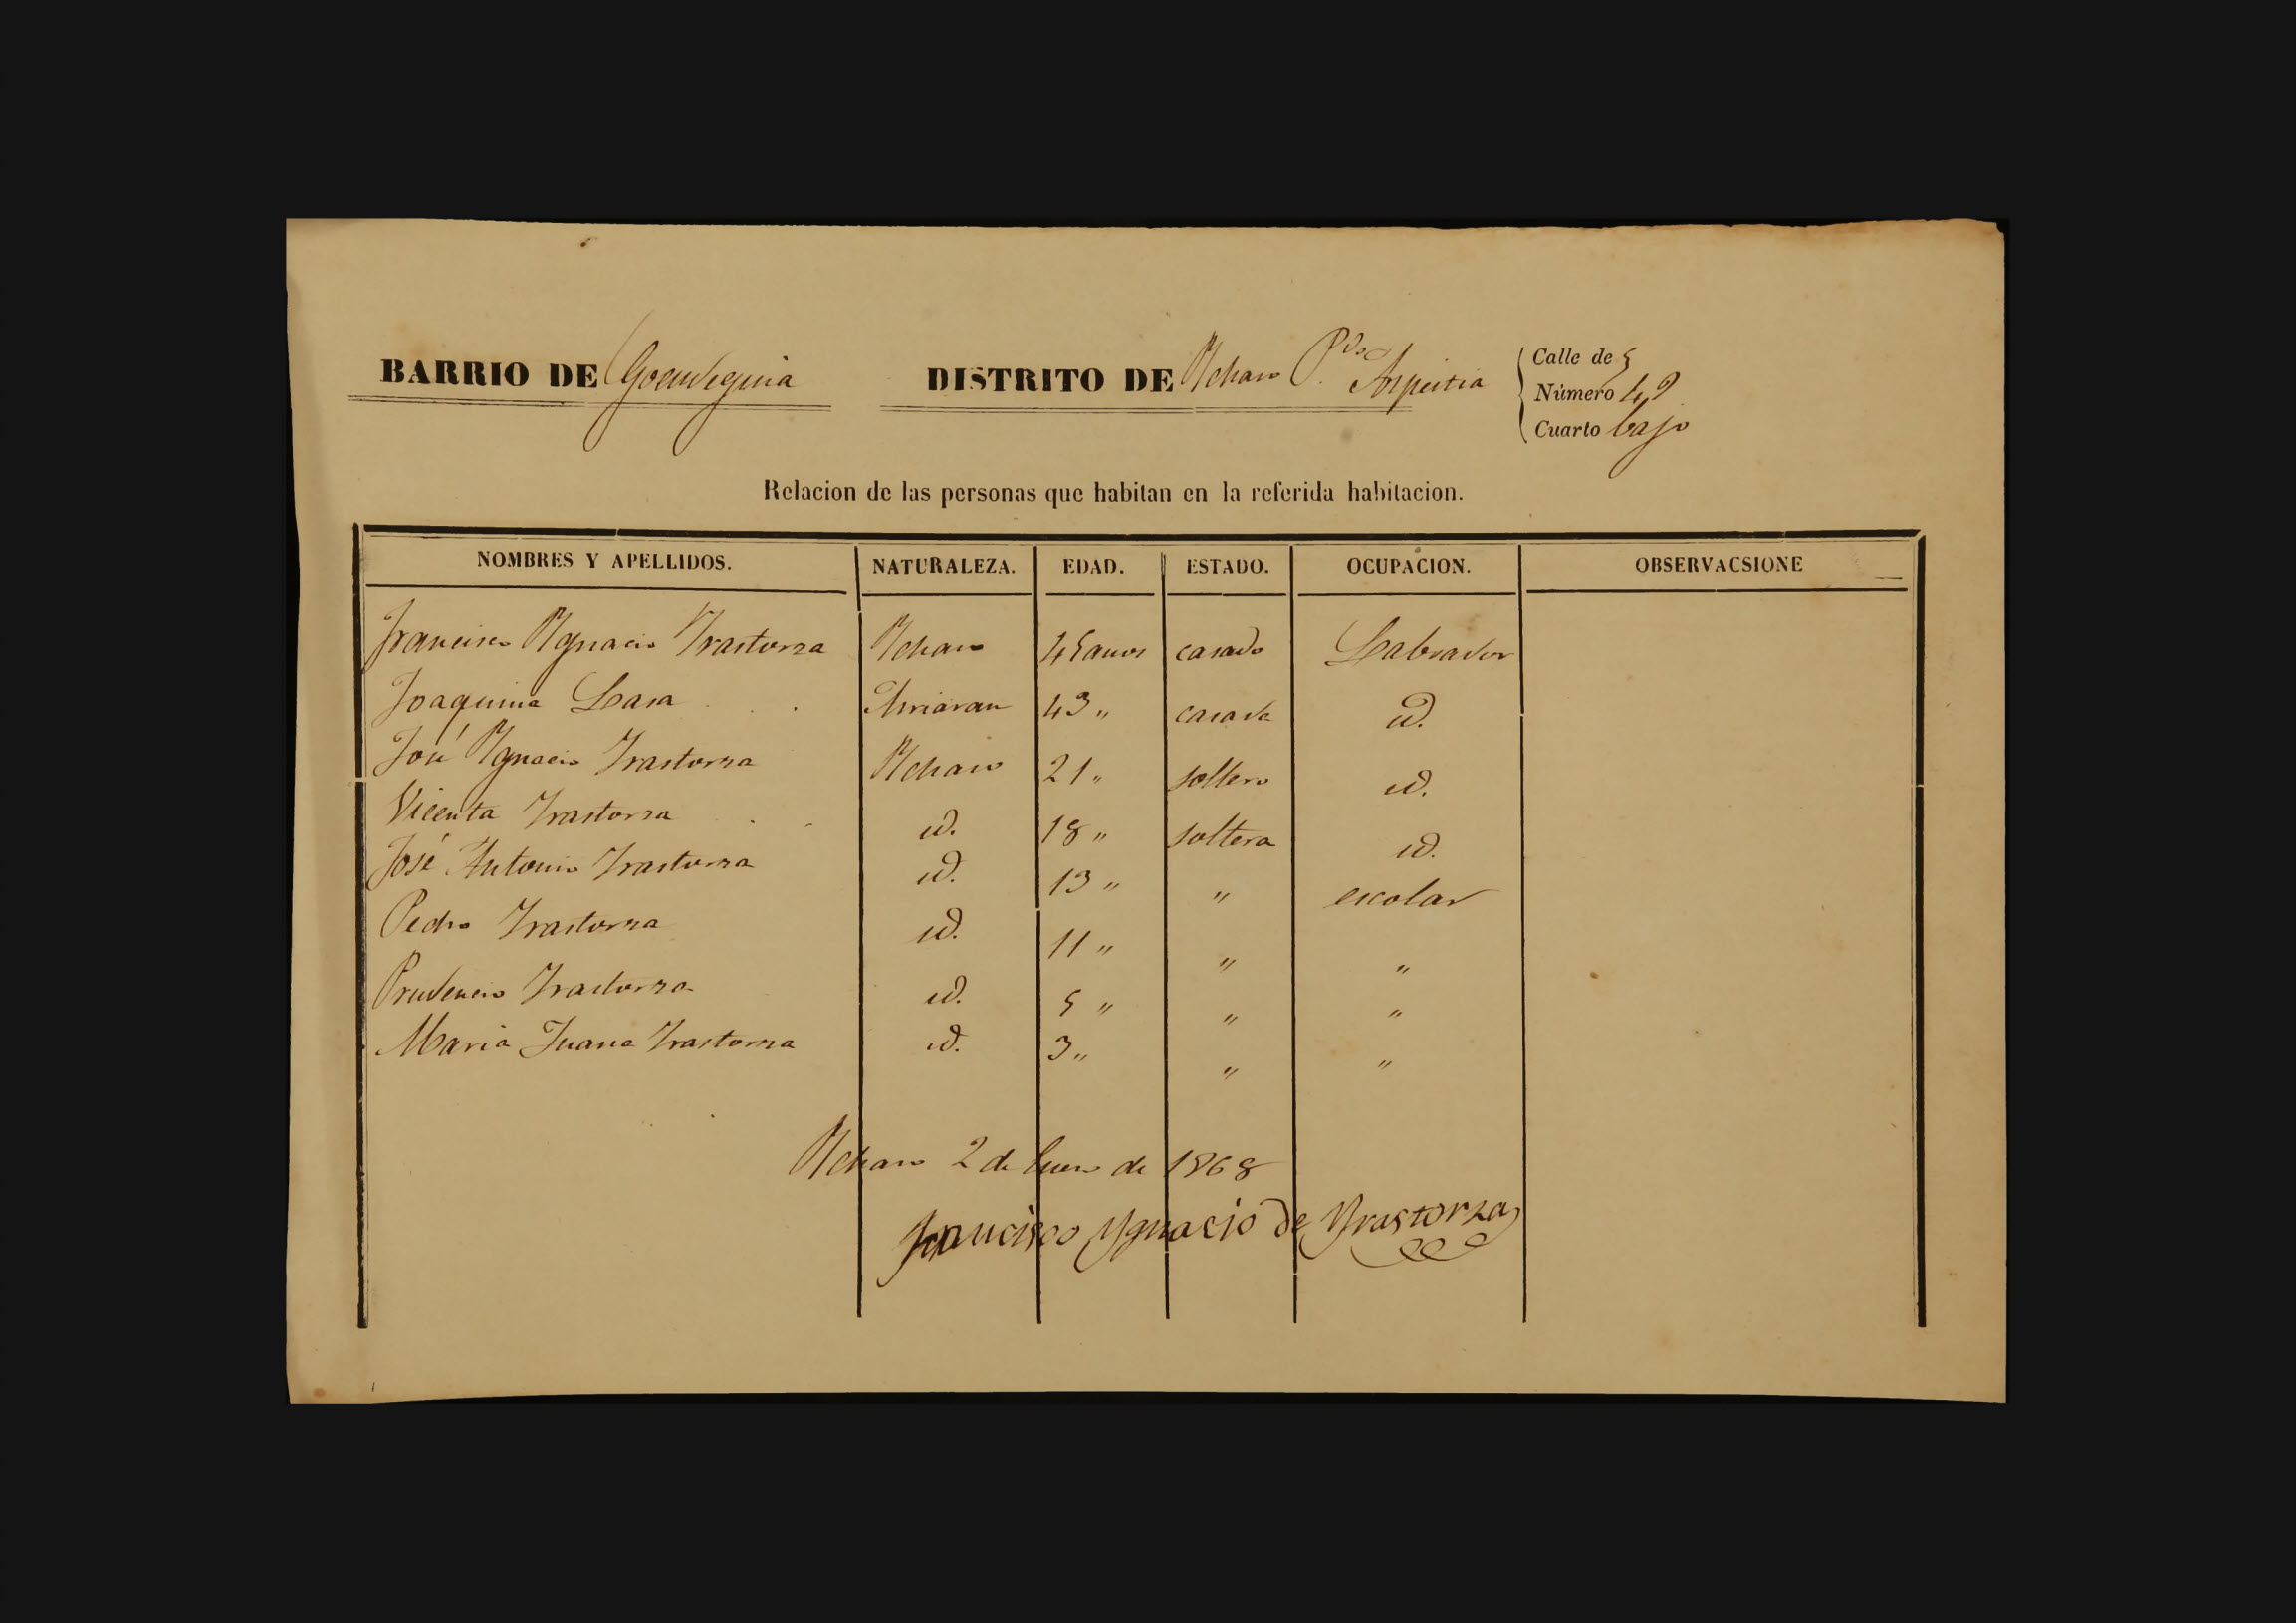 BARRIO DE Goendeguia DISTRITO DE Ychaso P.do Azpeitia
Calle de 5
Número 49
Cuarto bajo
Relacion de las personas que habitan en la referida habitacion.
NOMBRES Y APELLIDOS. NATURALEZA. EDAD. ESTADO. OCUPACION. OBSERVACSIONE
Francisco Ygnacio Yrastorza Ychaso 45 anos casado Labrador
Joaquina Lasa Arriaran 43 " casada id.
José Ygnacio Yrastorza Ychaso 21 " soltero id.
Vicenta Yrastorza id. 18 " soltera id.
José Antonio Yrastorza id. 13 " " escolar
Pedro Yrastorza id. 11 " " "
Prudencio Yrastorza id. 5 " " "
Maria Juana Yrastorza id. 3 " " "
Ychaso 2 de Enero de 1868
Francisco Ygnacio de Yrastorza